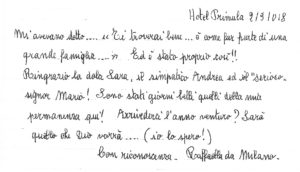 Hotel Primula 2/3/018
Mi avevano detto..... "Ti troverai bene... è come far parte di una
grande famiglia....." Ed è stato proprio così!!
Ringrazio la dolce Sara, il simpatico Andrea ed il "serioso"
signor Mario! Sono stati giorni belli quelli della mia
permanenza qui! Arrivederci l'anno venturo? Sarà
quello che Dio vorrà..... (io lo spero!)
Con riconoscenza. Raffaella da Milano.